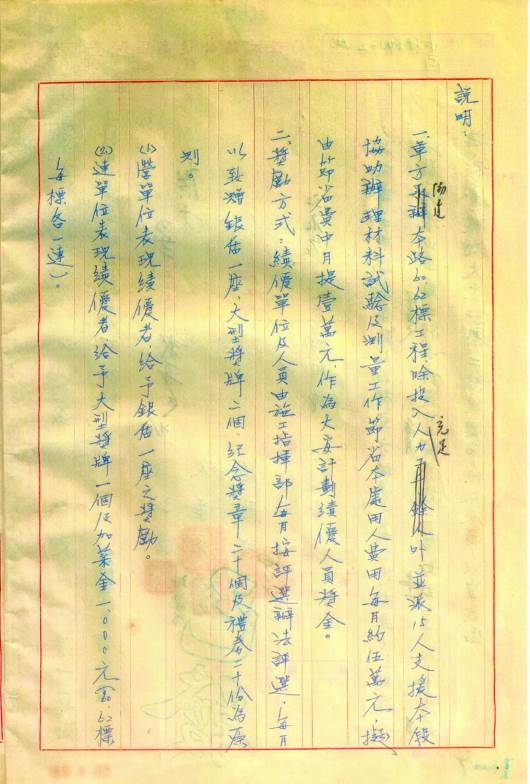 說明：
一、軍方協建本路60、62標工程、除投入人力充足外並派15人支援本段
協助辦理材料試驗及測量工作節省本處用人費用每月約伍萬元，擬
由節省費中月提壹萬元，作為大安計劃績優人員獎金。
二、獎勵方式：績優單位及人員由施工指揮部每月按評選辦法評選，每月
以致贈銀盾一座、大型獎牌二個、紀念獎章二十個及禮券二十份為原
則。
(1)營單位表現績優者、給予銀盾一座之獎勵。
(2)連單位表現績優者、給予大型獎牌一個及加菜金一、000元(60、62標
每標各一連)。